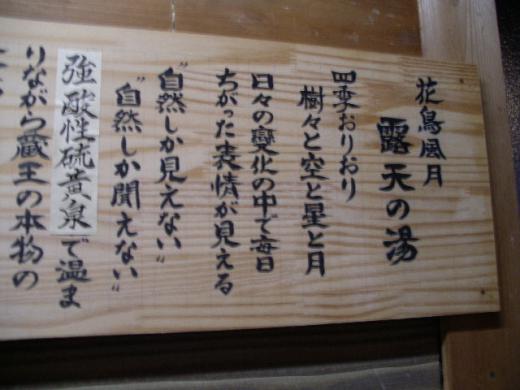 花鳥風月
露天の湯
四季おりおり
樹々と空と星と月
日々の變化の中で毎日
ちがった表情が見える
"自然しか見えない"
"自然しか聞えない"
強酸性硫黄泉で温ま
りながら蔵王の本物の